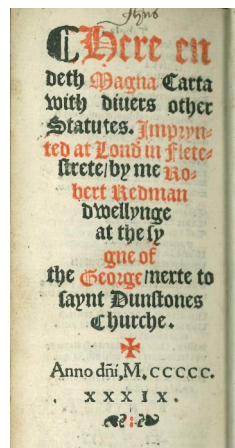 ¶Here en
deth Magna Carta
with diuers other
Statutes. Impryn⸗
ted at Lond in Flete⸗
strete/by me Ro⸗
bert Redman
dwellynge
at the sy
gne of
the George/nexte to
saynt Dunstones
Churche.
✠
Anno dñi, M. CCCCC.
XXXIX.